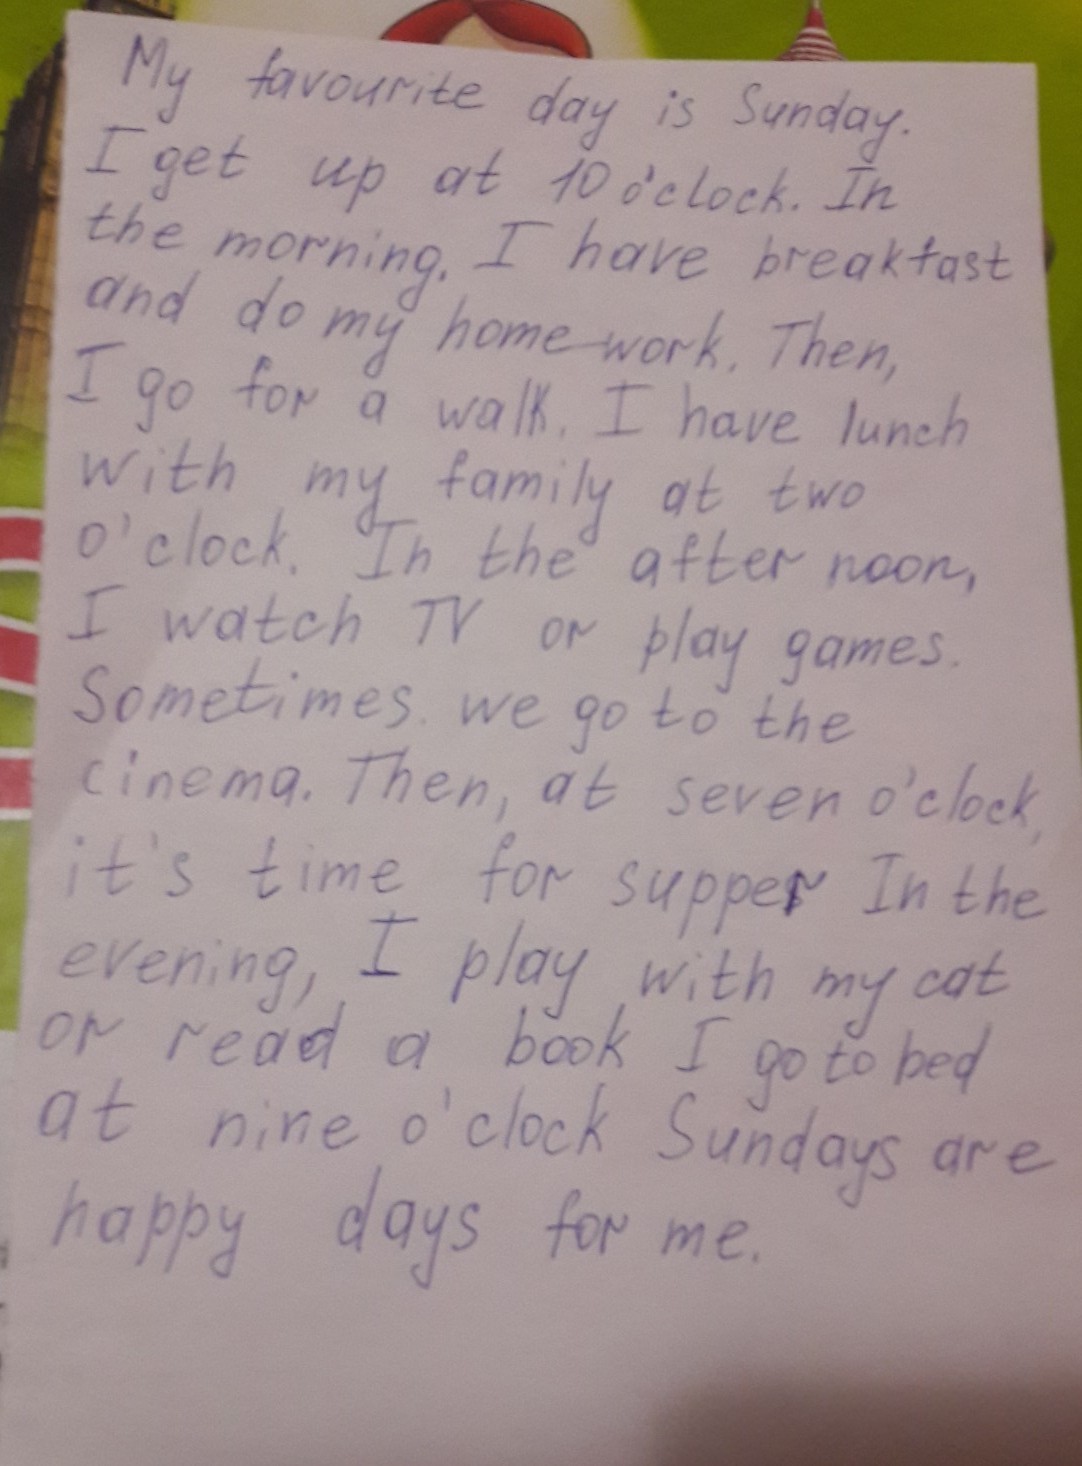 My favourite day is Sunday.
I get up at 10 o'clock. In
the morning. I have breakfast
and do my home-work. Then,
I go for a walk. I have lunch
with my family at two
o'clock. In the after noon,
I watch TV or play games.
Sometimes. we go to the
cinema. Then, at seven o'clock,
it's time for supper In the
evening, I play with my cat
or read a book I go to bed
at nine o'clock Sundays are
happy days for me.